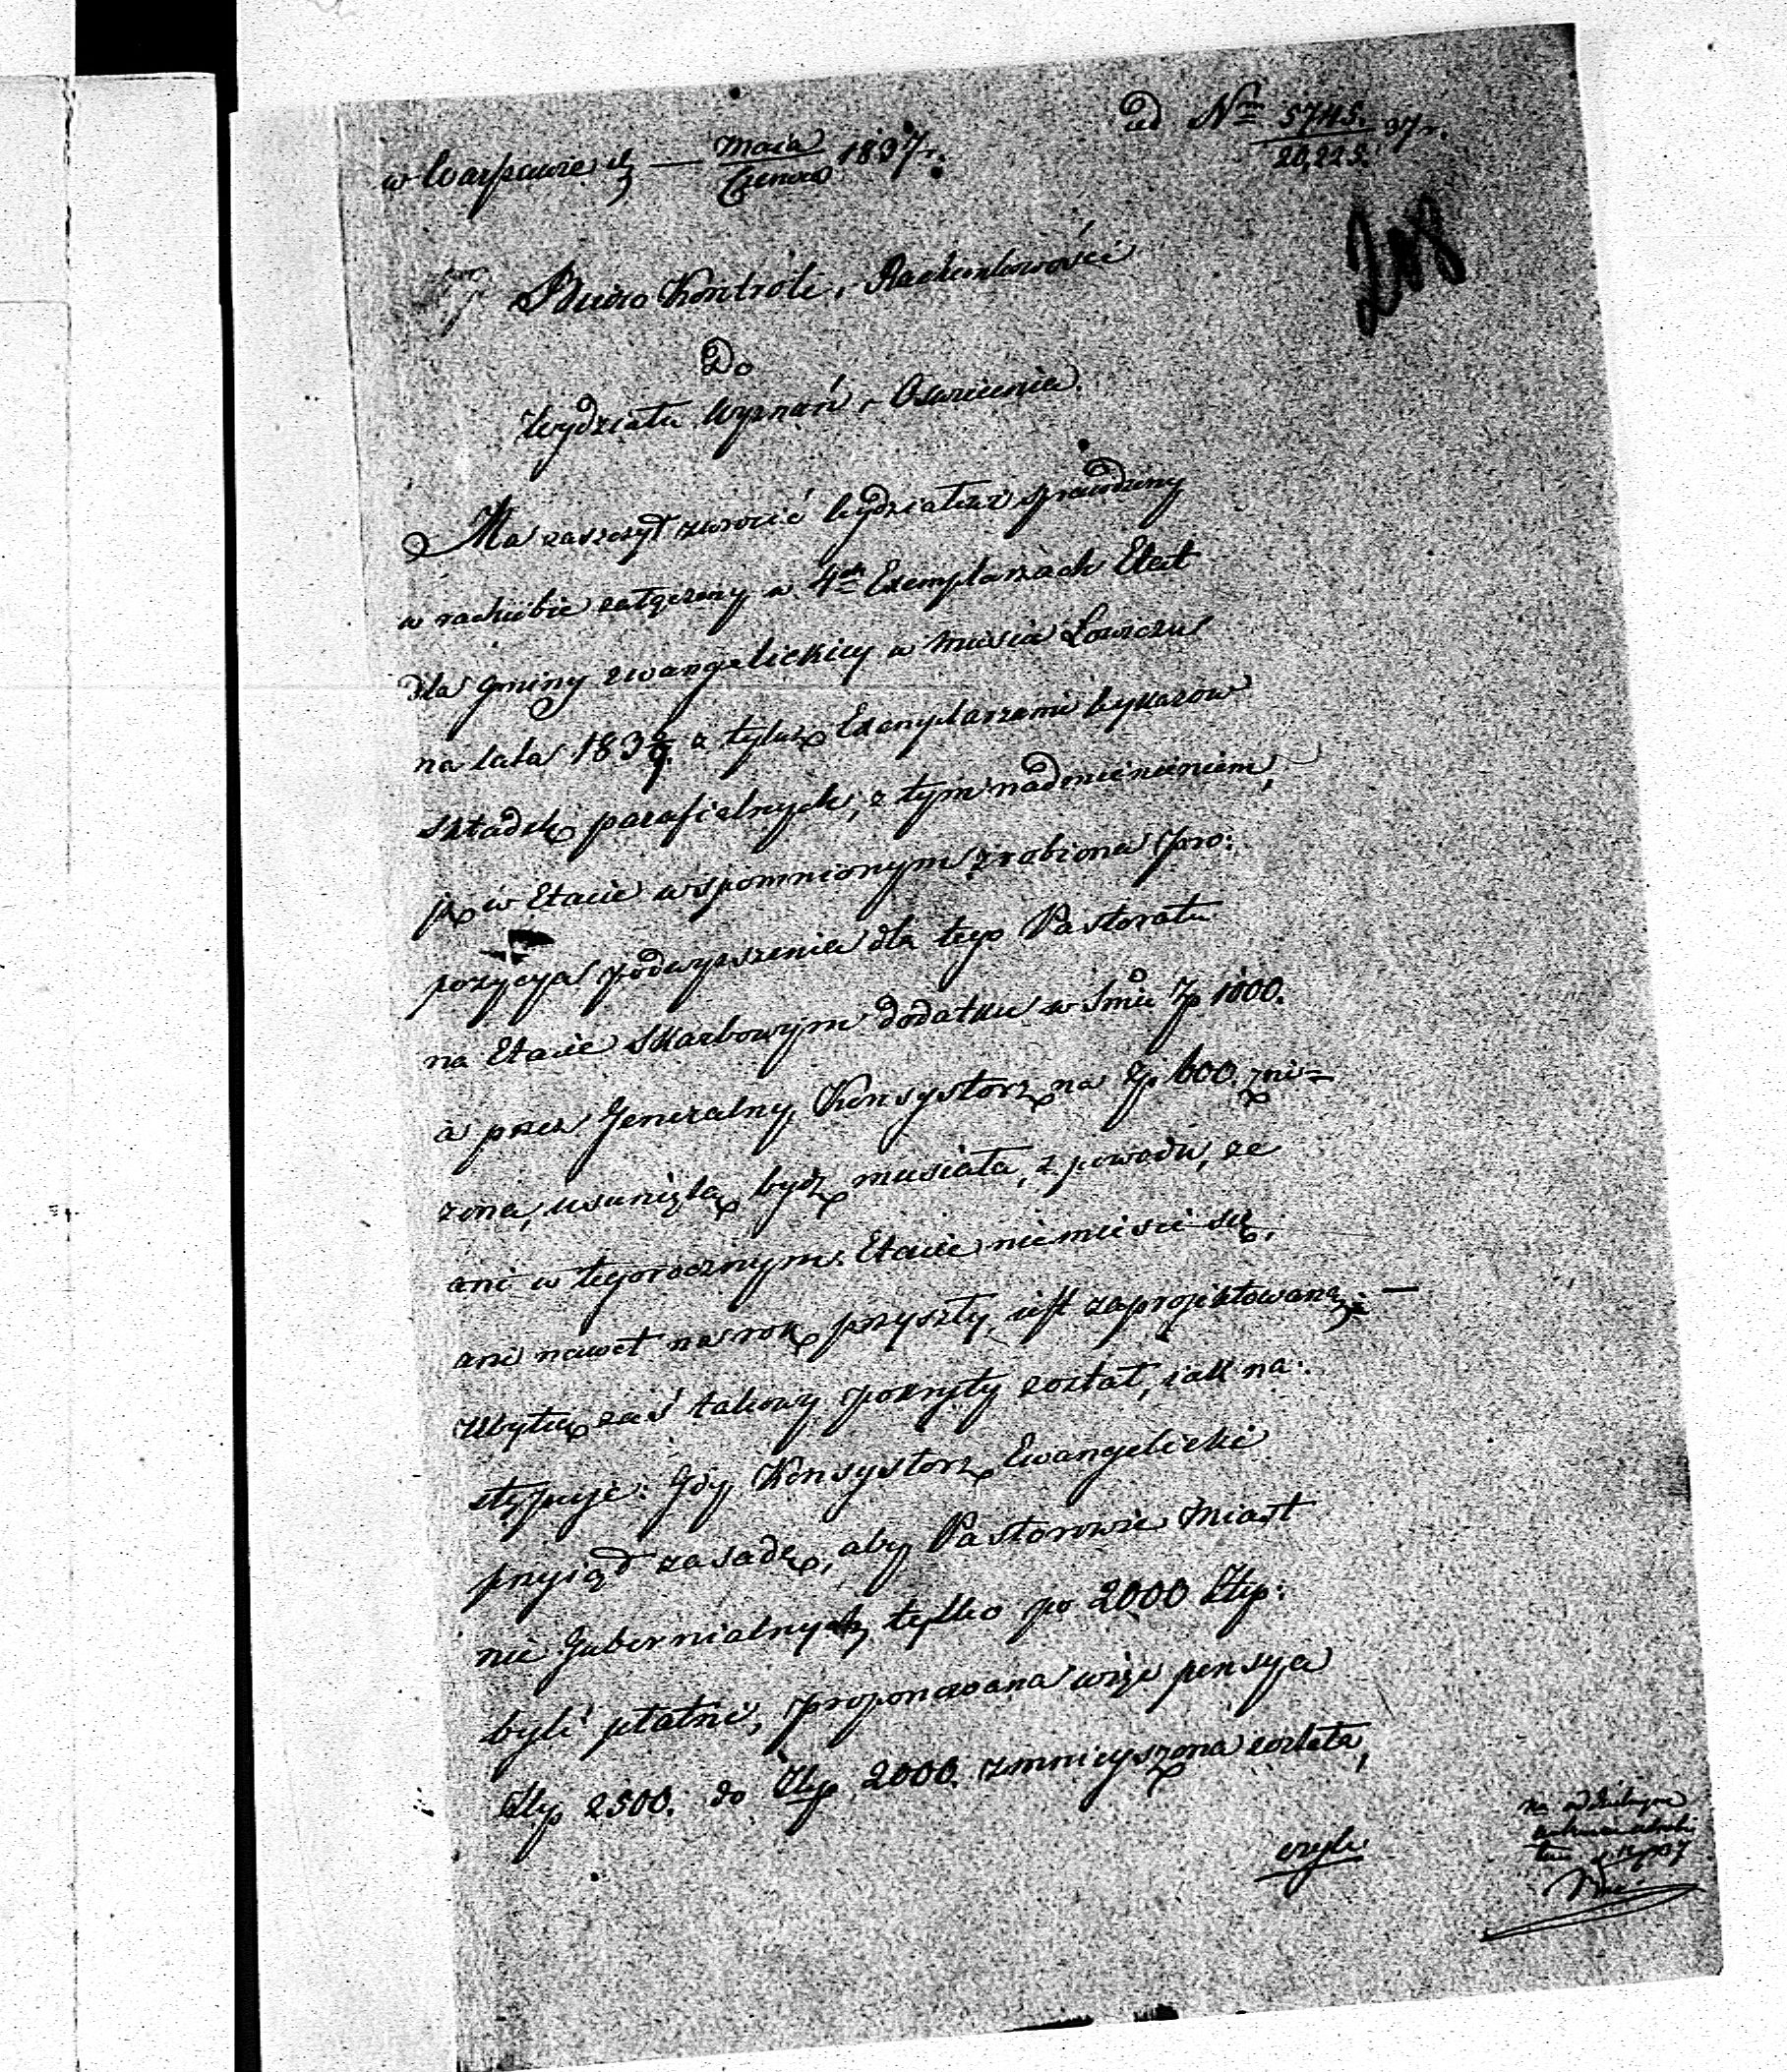 w Warszawie d. — Maia / Czerwca 1837 r.
ad Nm 5745. / 20,225. 37 r.
208
Biuro Kontroli i Rachunkowości
Do
Wydziału Wyznań i Oświecenia.
Ma zaszczyt zwrócić Wydziałowi sprawdzony
w rachubie załączony w 4ch Exemplarzach Etat
dla gminy ewangelickiey w mieście Łowiczu
na lata 183 z tyluż Exemplarzami Wykazów
składek parafialnych, z tym nadmienieniem,
iż w Etacie wspomnionym zrobiona pro:
pozycya podwyższenia dla tego Pastoratu
na Etacie Skarbowym dodatku w Smie Zp 1000.
a przez Generalny Konsystorz na Zp. 600. zni=
żona, usuniętą bydź musiała, z powodu, że
ani w tegorocznym Etacie nie mieści się,
ani nawet na rok przyszły iest zaprojektowaną. —
Ubytek zaś takowy pokryty został, iak na:
stępuje: Gdy Konsystorz Ewangelicki
przyiął zasadę, aby Pastorowie Miast
nie Gubernialnych, tylko po 2000 Złp:
byli płatni, proponowana więc pensya
Złp 2500. do Złp 2000. zmnieyszona została,
czyli